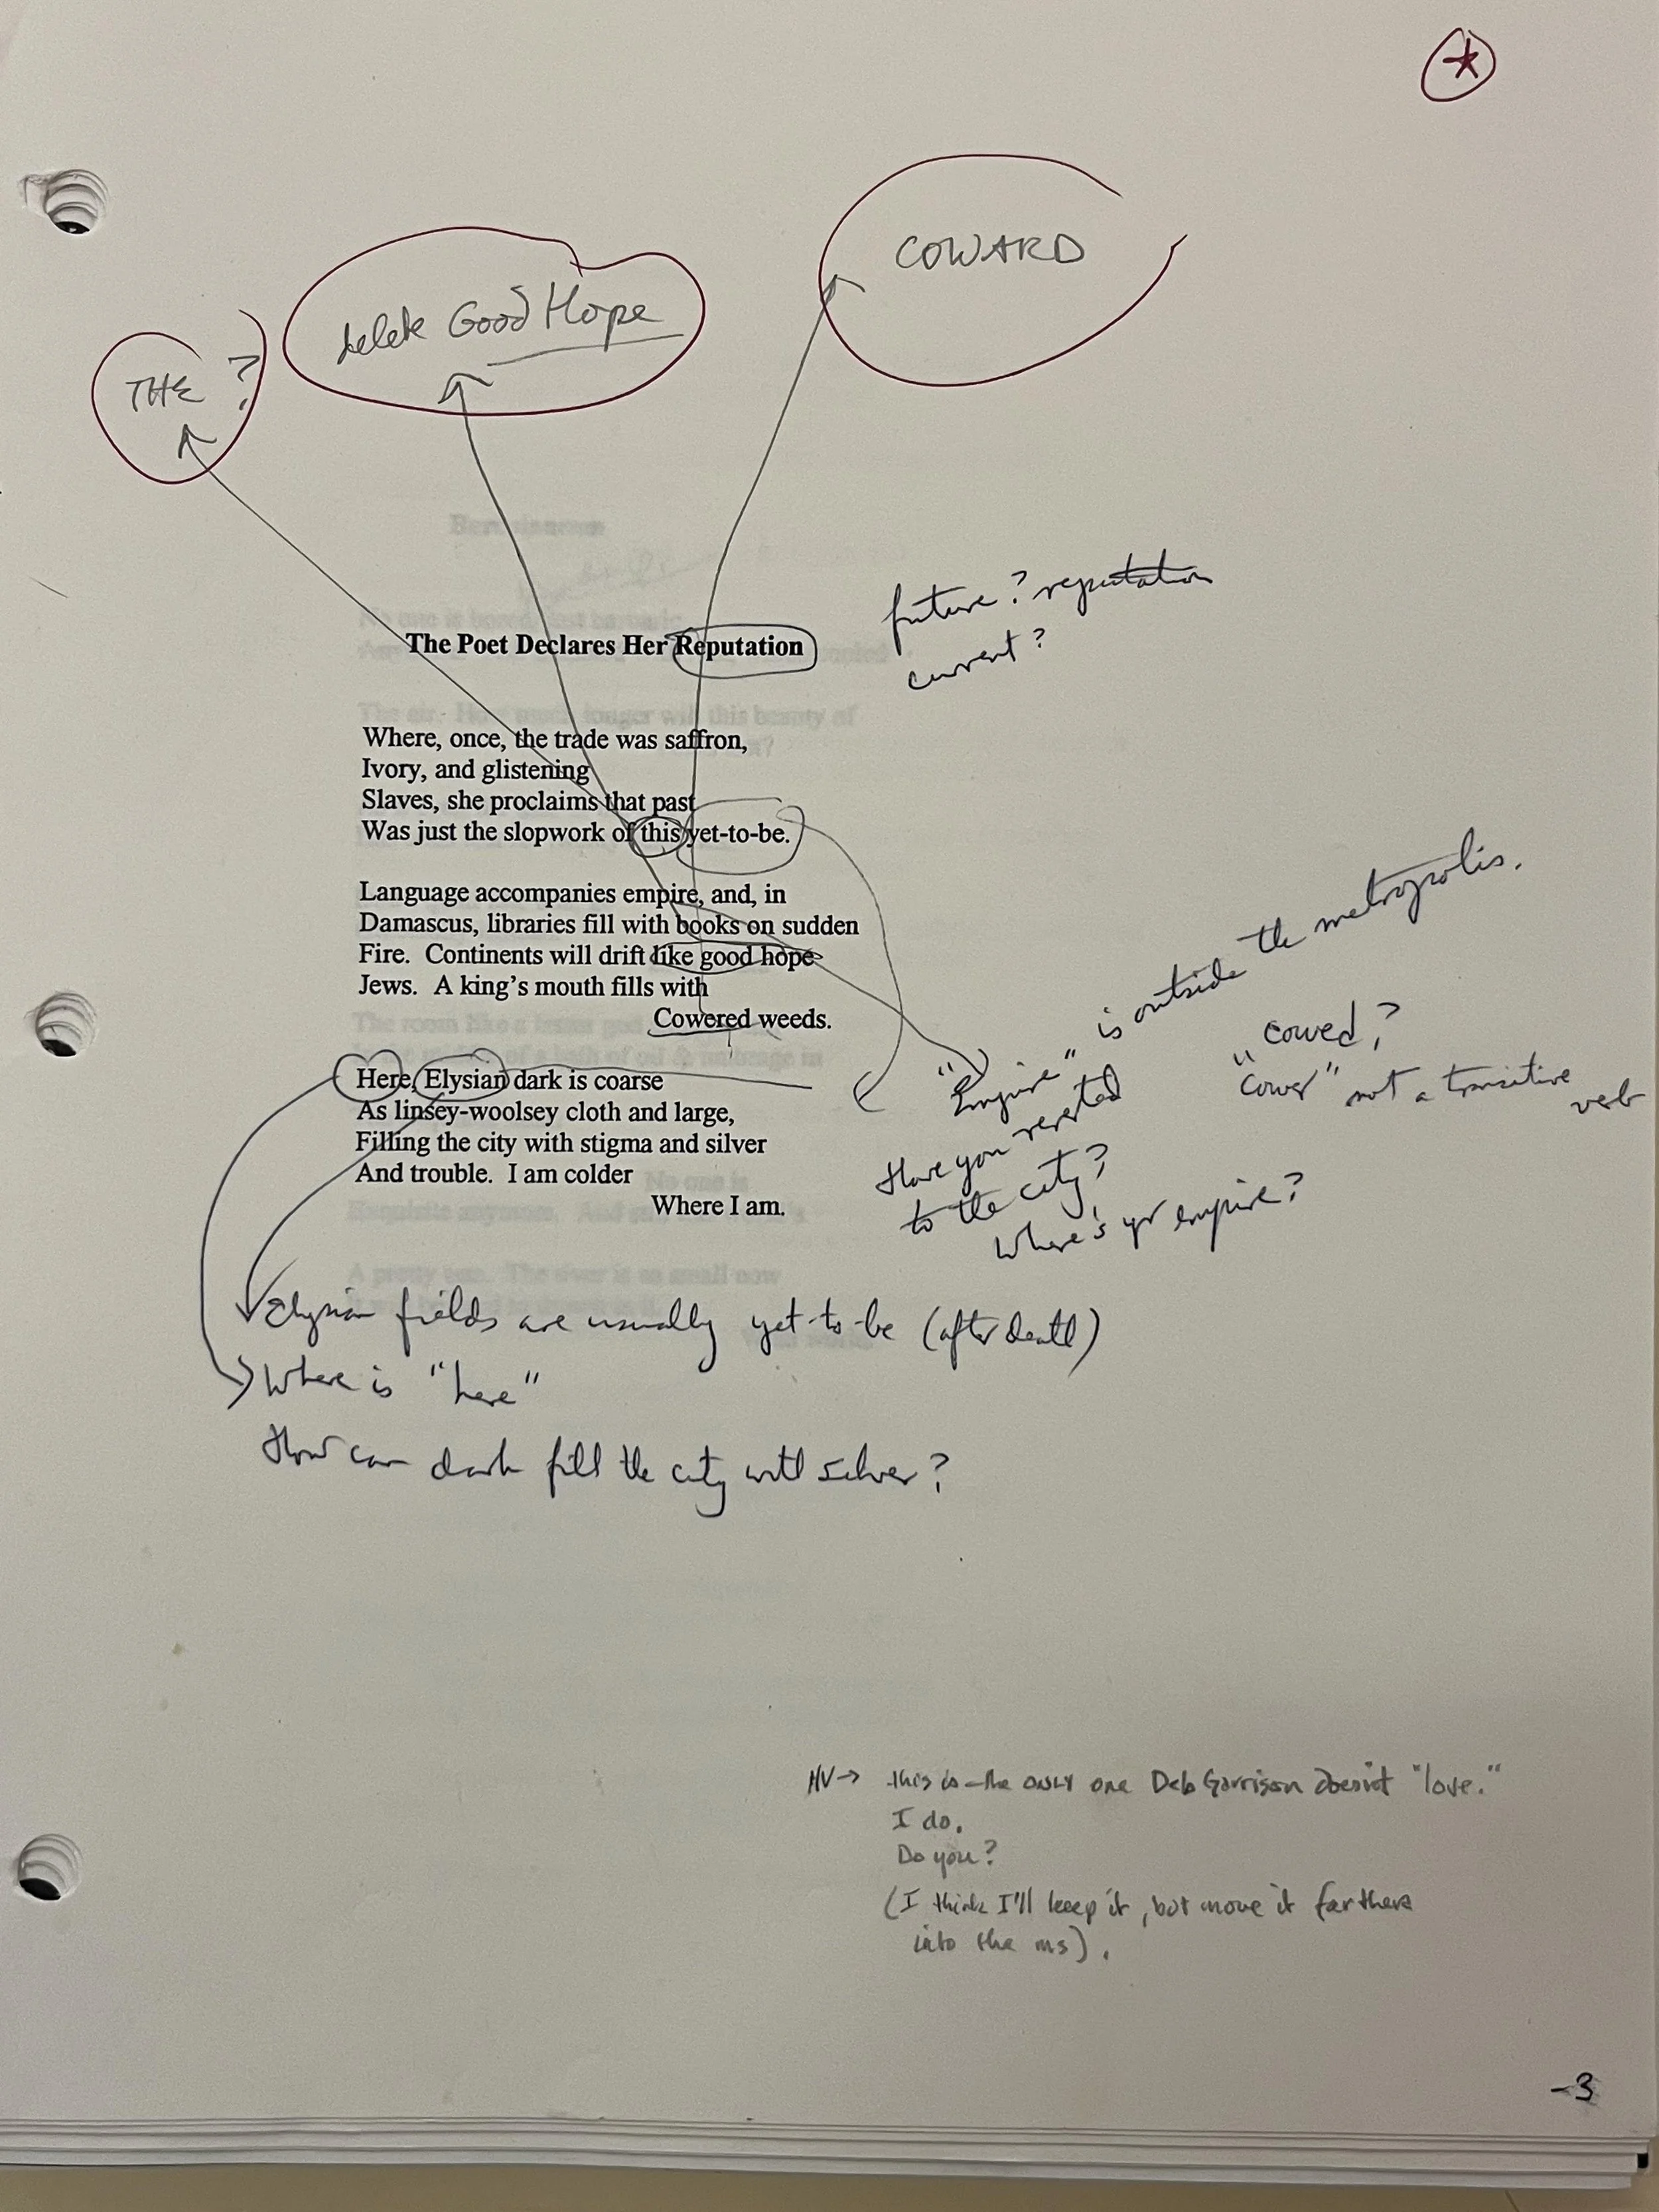 COWARD
delete Good Hope
THE ?
future? reputation
current?
The Poet Declares Her Reputation
Where, once, the trade was saffron,
Ivory, and glistening
Slaves, she proclaims that past
Was just the slopwork of this yet-to-be.
Language accompanies empire, and, in
Damascus, libraries fill with books on sudden
Fire. Continents will drift like good hope
Jews. A king's mouth fills with
Cowered weeds.
"Empire" is outside the metropolis.
Have you reverted
to the city?
Where's yr empire?
"cowed?
"Cower" not a transitive
verb
Here, Elysian dark is coarse
As linsey-woolsey cloth and large,
Filling the city with stigma and silver
And trouble. I am colder
Where I am.
Elysian fields are usually yet-to-be (after death)
Where is "here"
How can dark fill the city with silver?
HV → this is the ONLY one Deb Garrison doesn't "love."
I do.
Do you?
(I think I'll keep it, but move it farther
into the ms).
-3